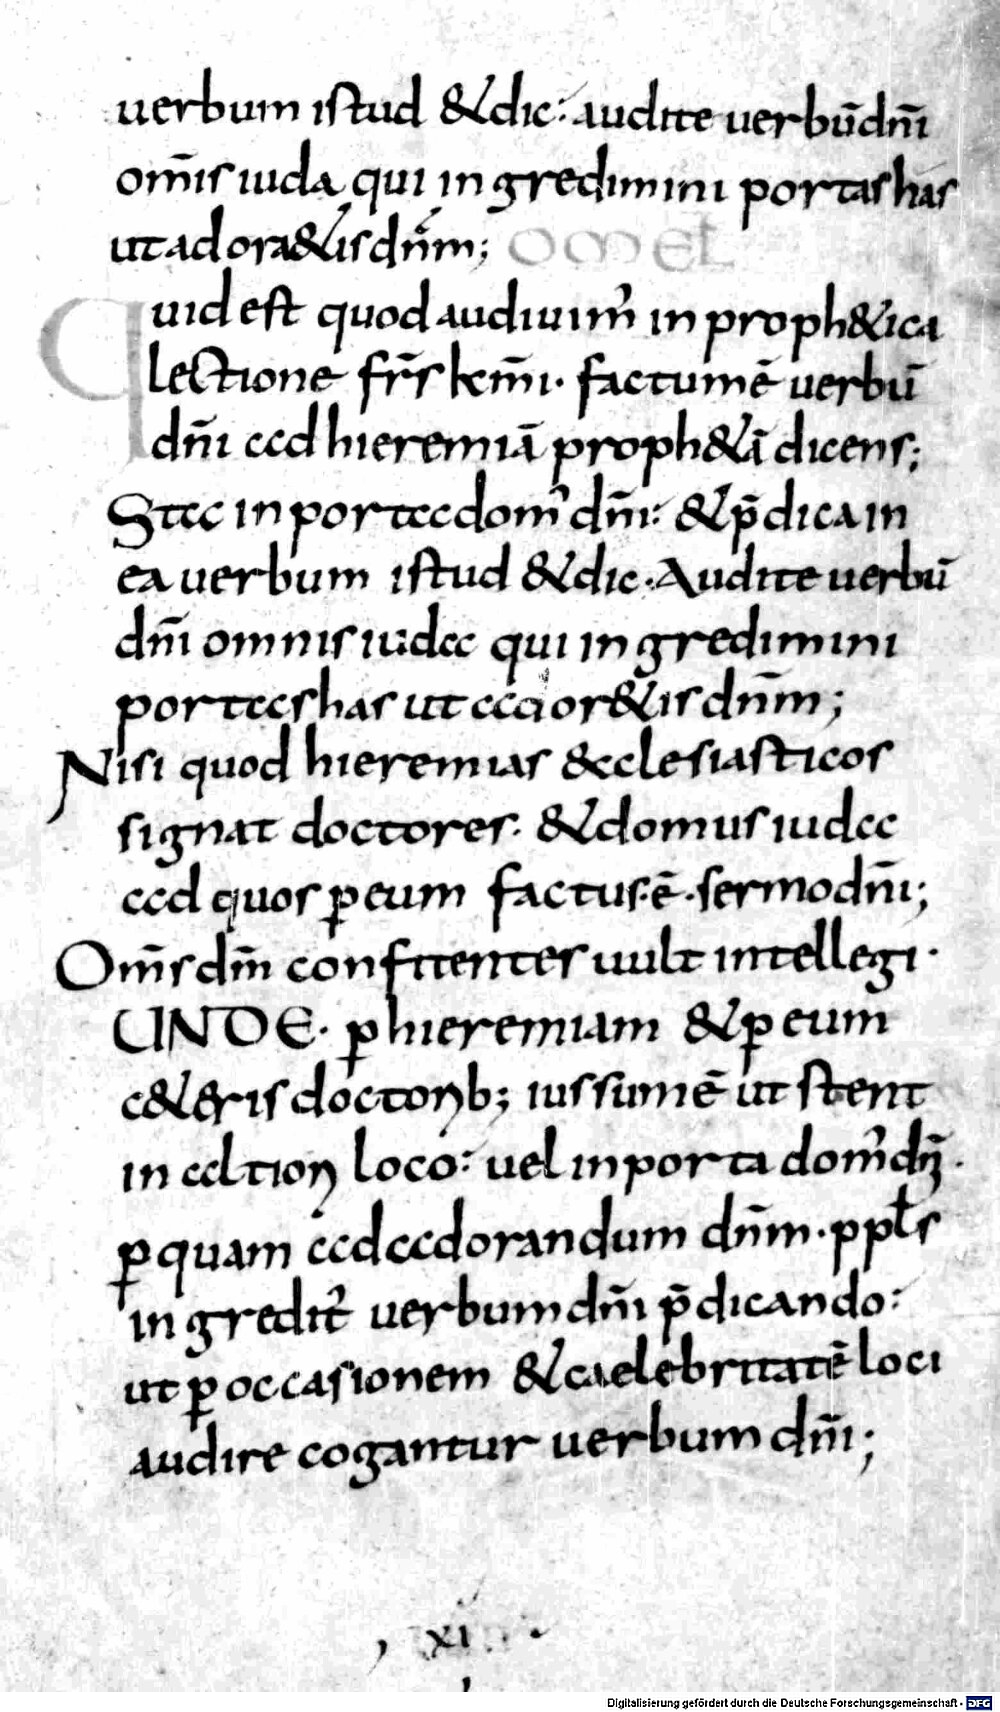 uerbum istud & dic: audite uerbū dn̄i
om̄is iuda, qui ingredimini portas has
ut ador&is dn̄m; OMEL
Quid est quod audiuim' in proph&ica
lectione fr̄s km̄i. factum ē uerbū
dn̄i ad hieremiā proph&ā dicens;
Sta in porta dom' dn̄i: & p̄dica in
ea uerbum istud & dic. Audite uerbū
dn̄i omnis iuda qui ingredimini
portas has ut ador&is dn̄m;
Nisi quod hieremias &cclesiasticos
signat doctores. & domus iuda
ad quos ꝑ eum factus. ē. sermo dn̄i;
Om̄s dn̄m confitentes uult intellegi.
UNDE. ꝑ hieremiam & ꝑ eum
c&eris doctoꝝb; iussum ē ut stent
in altioꝝ loco: uel in porta dom' dn̄i.
ꝑ quam ad adorandum dn̄m. ppl̄s
ingredit' uerbum dn̄i p̄dicando:
ut ꝑ occasionem & caelebritatē loci
audire cogantur uerbum dn̄i;
xi
Digitalisierung gefördert durch die Deutsche Forschungsgemeinschaft - DFG